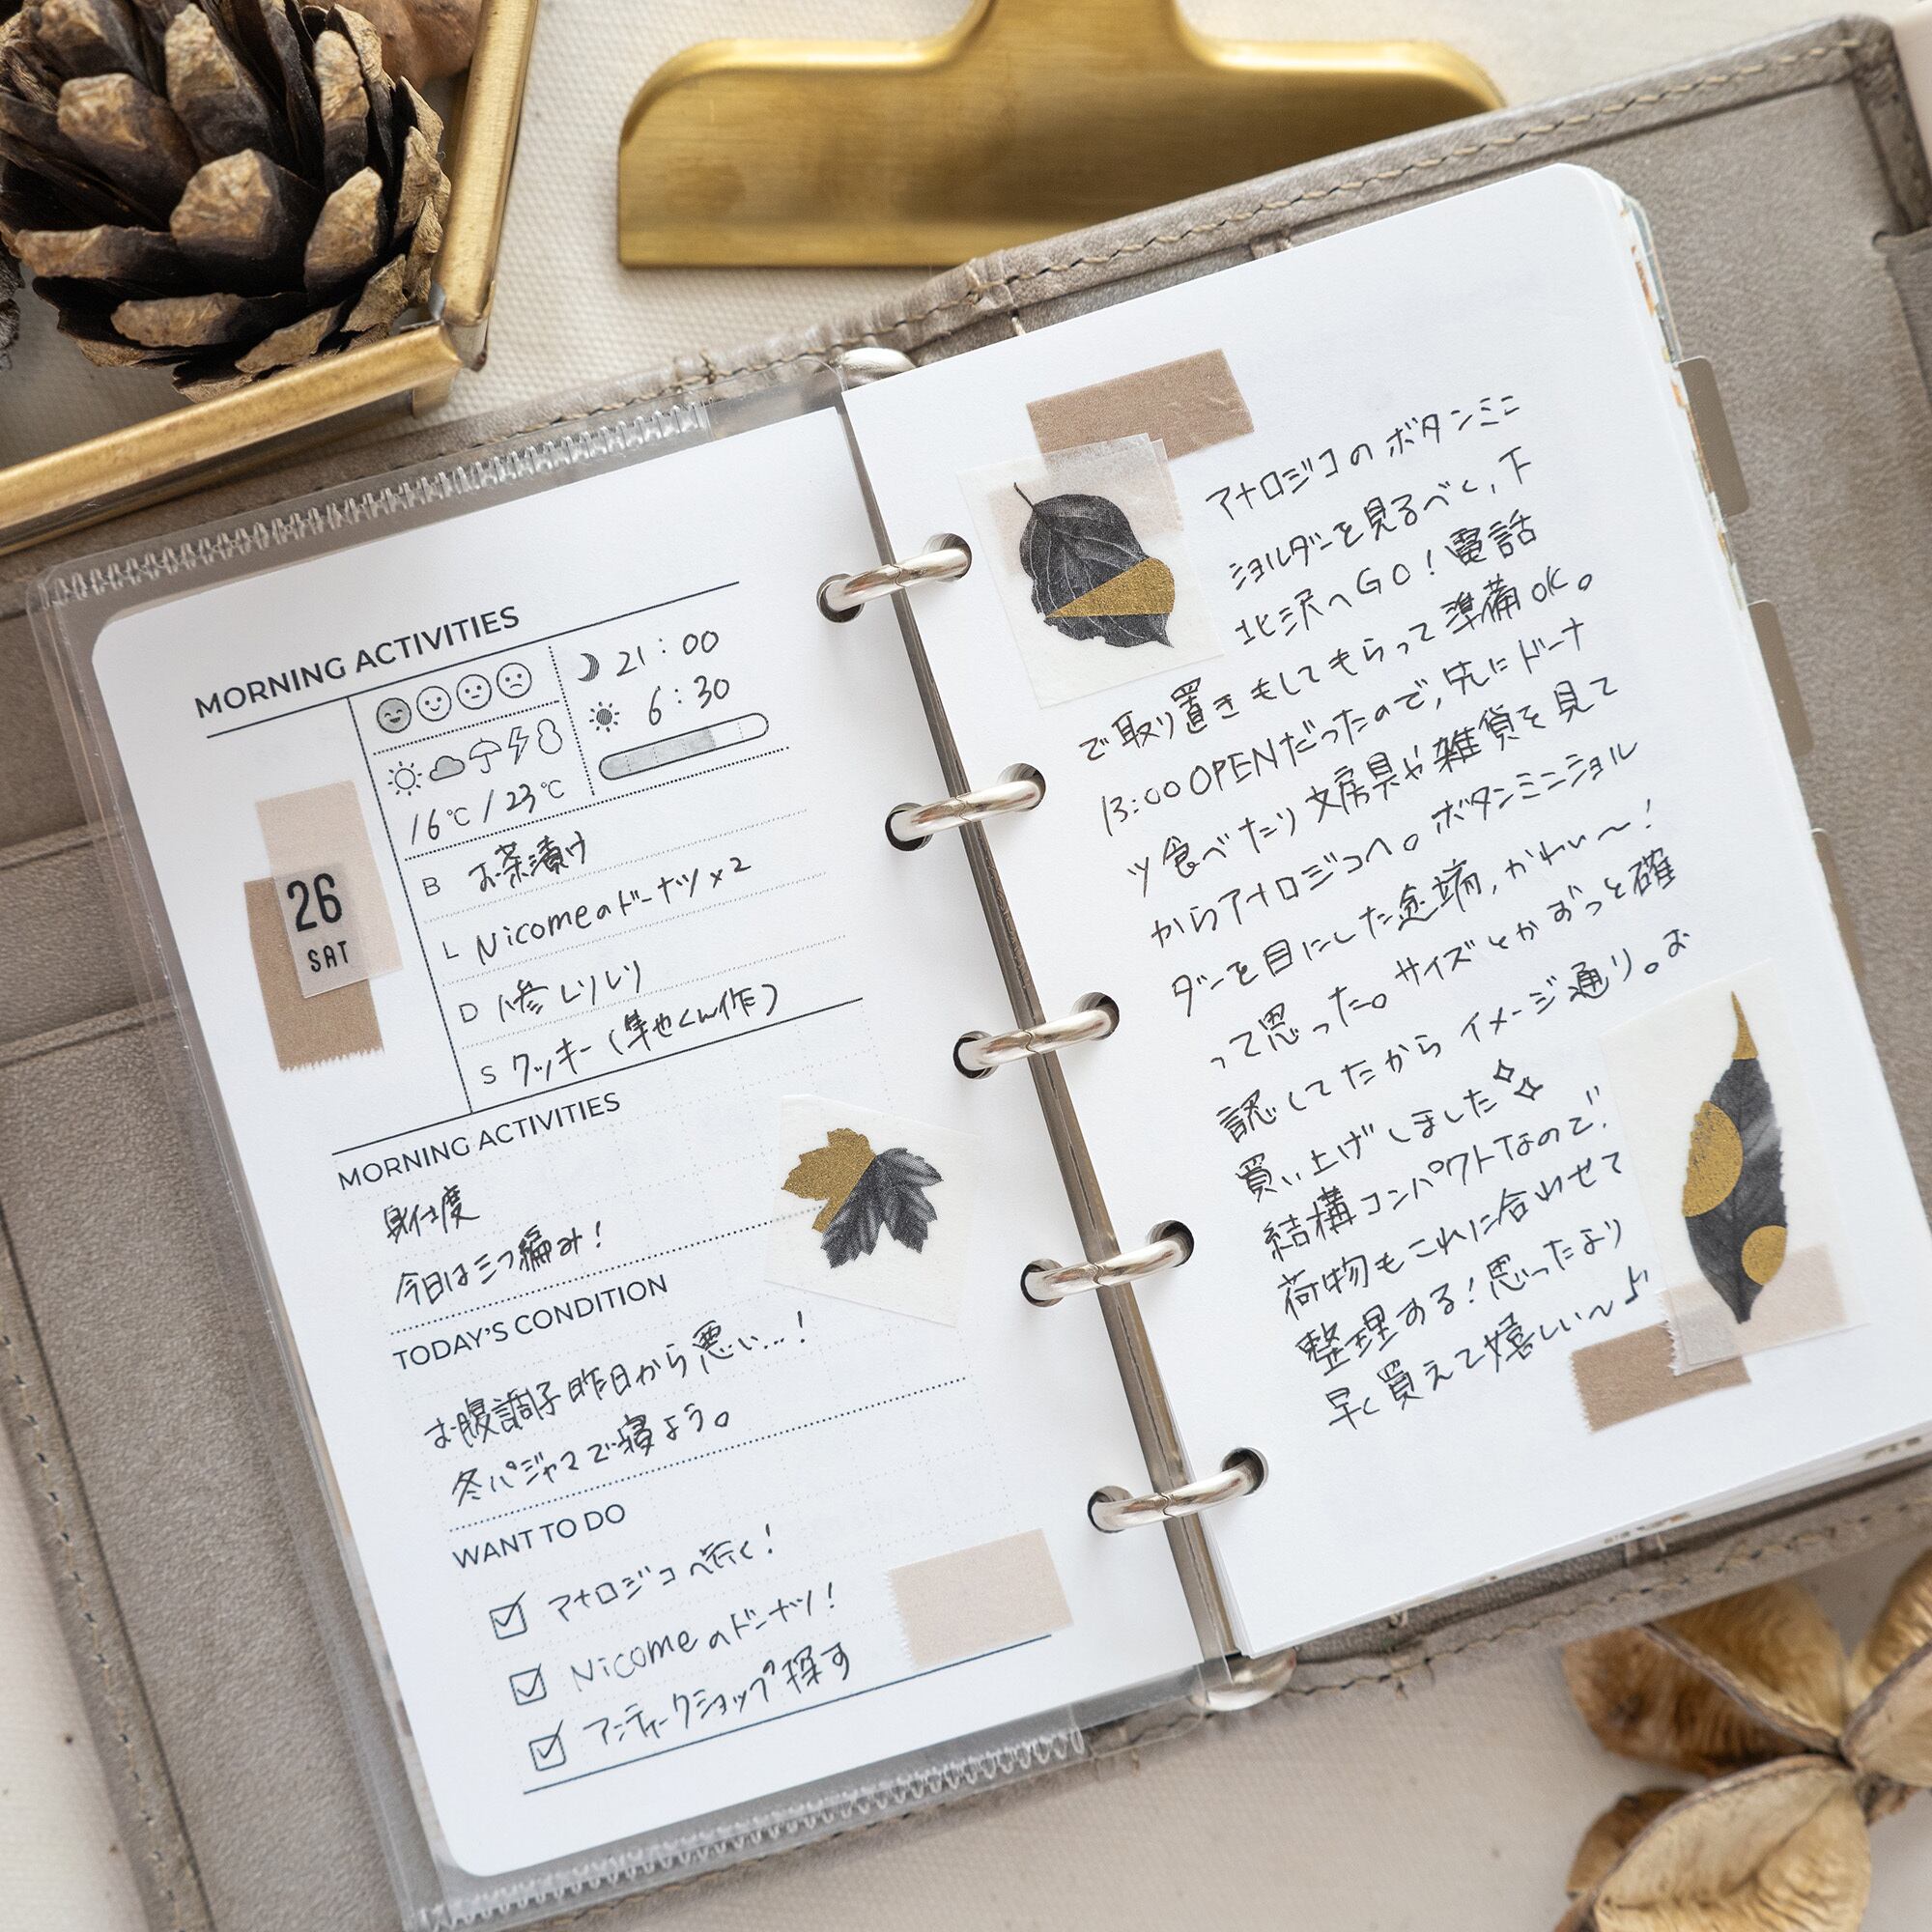 MORNING ACTIVITIES
21:00
6:30
16℃/23℃
26
SAT
B お茶漬け
L Nicomeのドーナツ×2
D
S クッキー(隼也くん作)
MORNING ACTIVITIES
身仕度
今日は三つ編み!
TODAY'S CONDITION
お腹調子昨日から悪い…!
冬パジャマで寝よう。
WANT TO DO
アナロジコへ行く!
Nicomeのドーナツ!
アンティークショップ探す
アナロジコのボタンミニ
ショルダーを見るべく、下
北沢へGO!電話
で取り置きもしてもらって準備OK。
13:00 OPENだったので、先にドーナ
ツ食べたり文房具や雑貨を見て
からアナロジコへ。ボタンミニショル
ダーを目にした途端、かわい〜!
って思った。サイズとかずっと確
認してたからイメージ通り。お
買い上げしました
結構コンパクトなので、
荷物もこれに合わせて
整理する!思ったより
早く買えて嬉しい〜♪